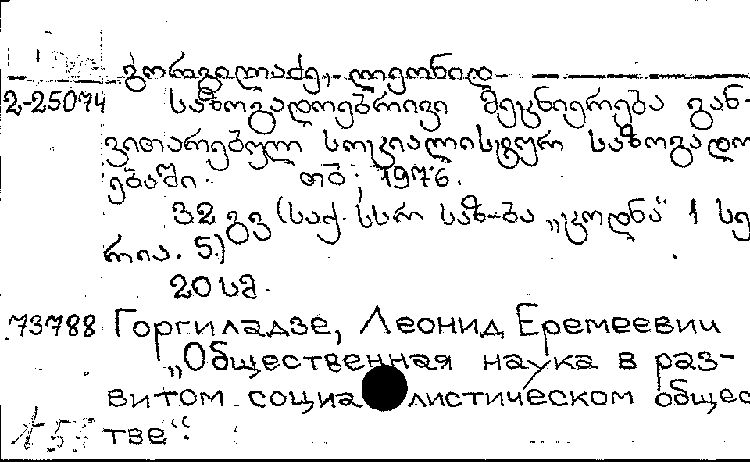 გორგილაძე, ლეონიდ
2-25074 საზოგადოებრივი მეცნიერება გან-
ვითარებულ სოციალისტურ საზოგადო
ებაში. თბ., 1976.
32 გვ (საქ. სსრ საზ-ბა „ცოდნა“ 1 სე
რია. 5.)
20 სმ.
73788 Горгиладзе, Леонид Еремеевич
„Общественная наука в раз-
витом социалистическом общес
тве“.